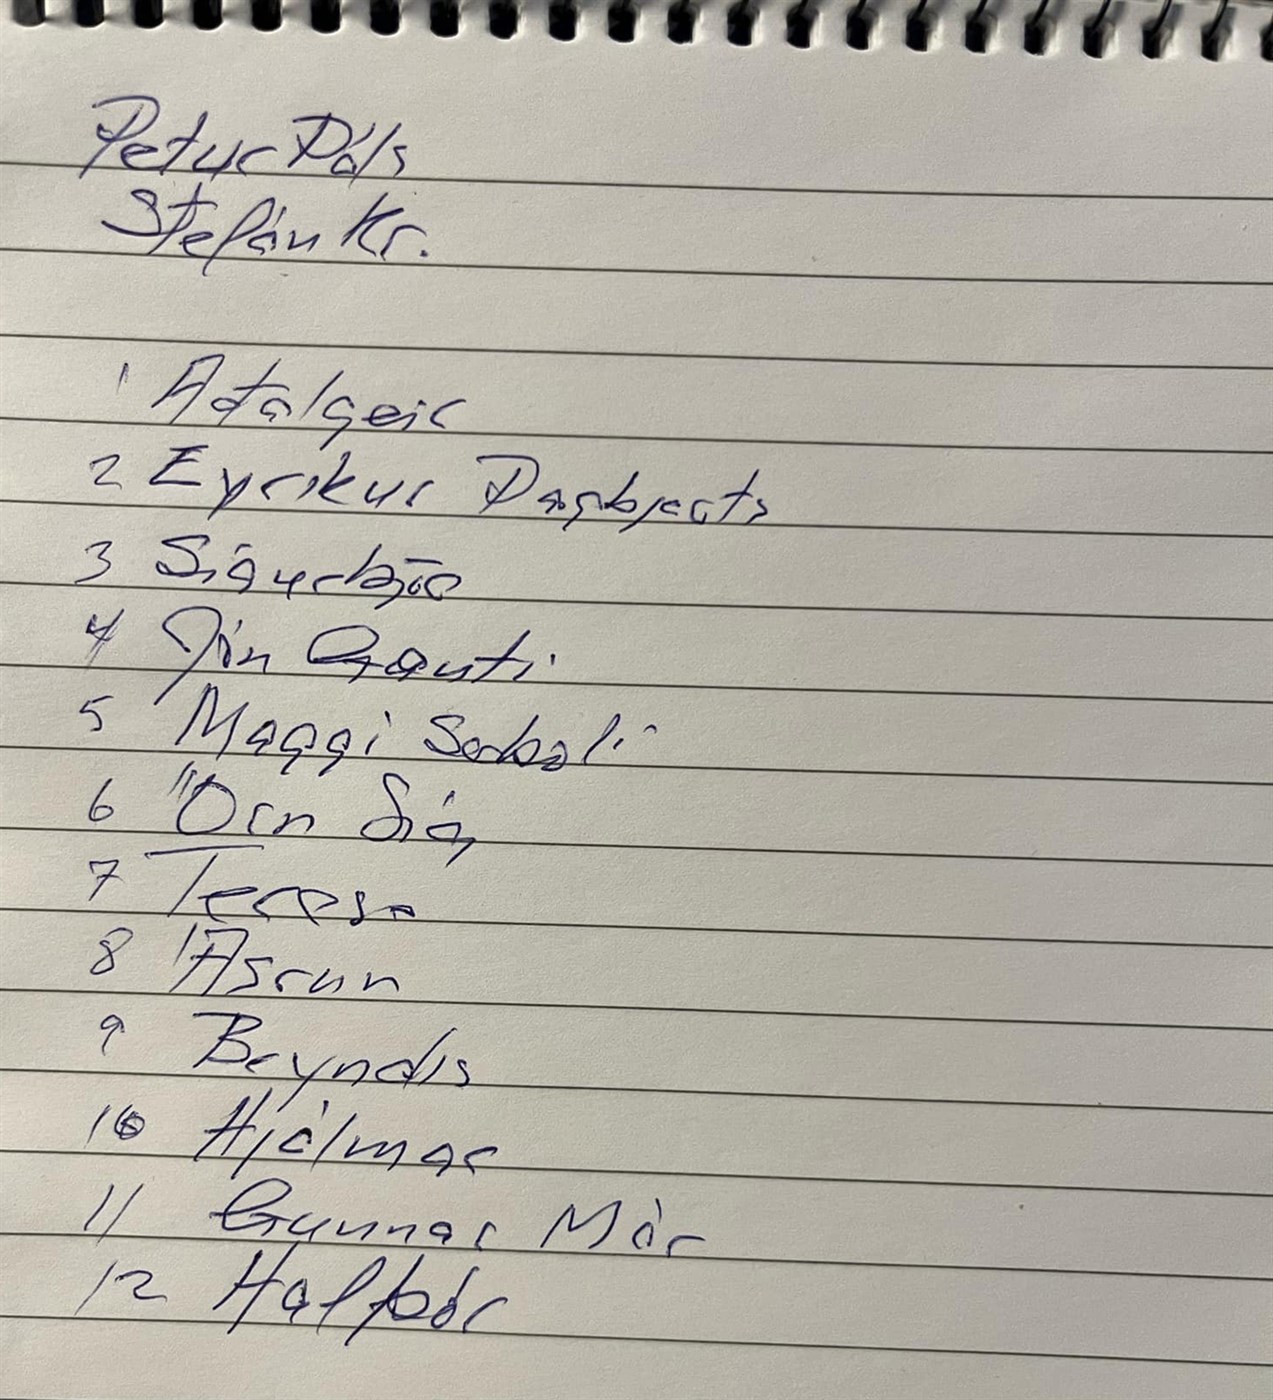 Petur Páls
Stefán Kr.
1 Aðalgeir
2 Eyrikur Dagbjarts
3 Sigurbjör
4 Jón Gauti
5 Maggi
6 Örn Sig
7 Teresa
8 Ásrun
9 Bryndis
10 Hjálmar
11 Gunnar Már
12 Hafþór